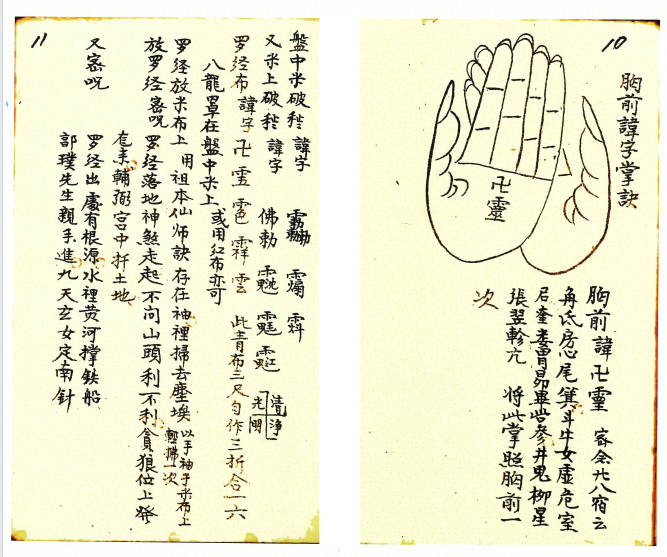 10
胸前諱字掌訣
卍靈
胸前諱卍靈 密念廿八宿云
角氐房心尾箕斗牛女虛危室
奎婁胃昴畢觜參井鬼柳星
張翌軫亢 將此掌照胸前一
次
11
盤中米破秽 諱字
又米上破秽 諱字 佛勅
清淨
光明
罗经布 諱字 卍 此青布三尺勻作三折合一六
八龍罩在盤中米上 或用红布亦可
罗经放米布上 用祖本仙师訣存在神裡掃去塵埃 以手袖子米布上
輕拂一次
放罗经密咒 罗经落地神煞走起 不问山頭利不利 貪狼位上発
輔弼宮中扦土地
又密咒 罗经出處有根源 水裡黄河撑鉄船
郭璞先生親手進 九天玄女定南针